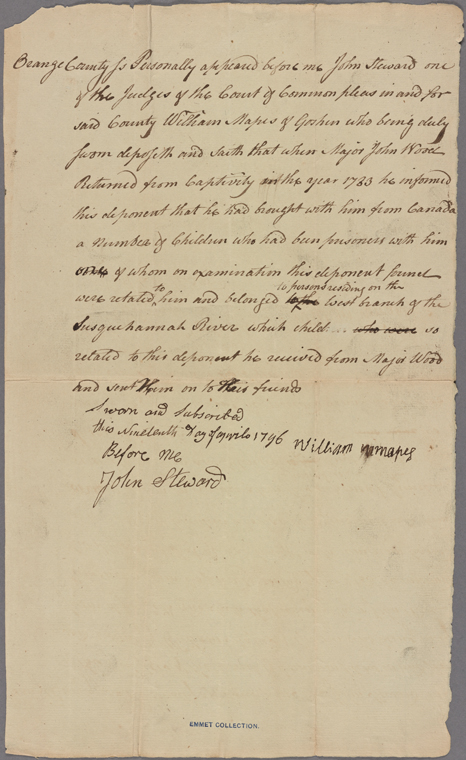 Orange County Ss Personally appeared before me John Steward one
of the Judges of the Court of Common pleas in and for
said County William Mapes of Goshen who being duly
sworn deposeth and saith that when Major John Wood
Returned from Captivity in the year 1783 he informed
this deponent that he had brought with him from Canada
a Number of Children who had been prisoners with him
of whom on examination this deponent found
to persons residing on the
were related to him and belonged to the West branch of the
Susquehannah River which child... who were so
related to this deponent he received from Major Wood
and sent him on to their friends
Sworn and Subscribed
this Nineteenth Day of 1796
William mapes
Before me
John Steward
EMMET COLLECTION.